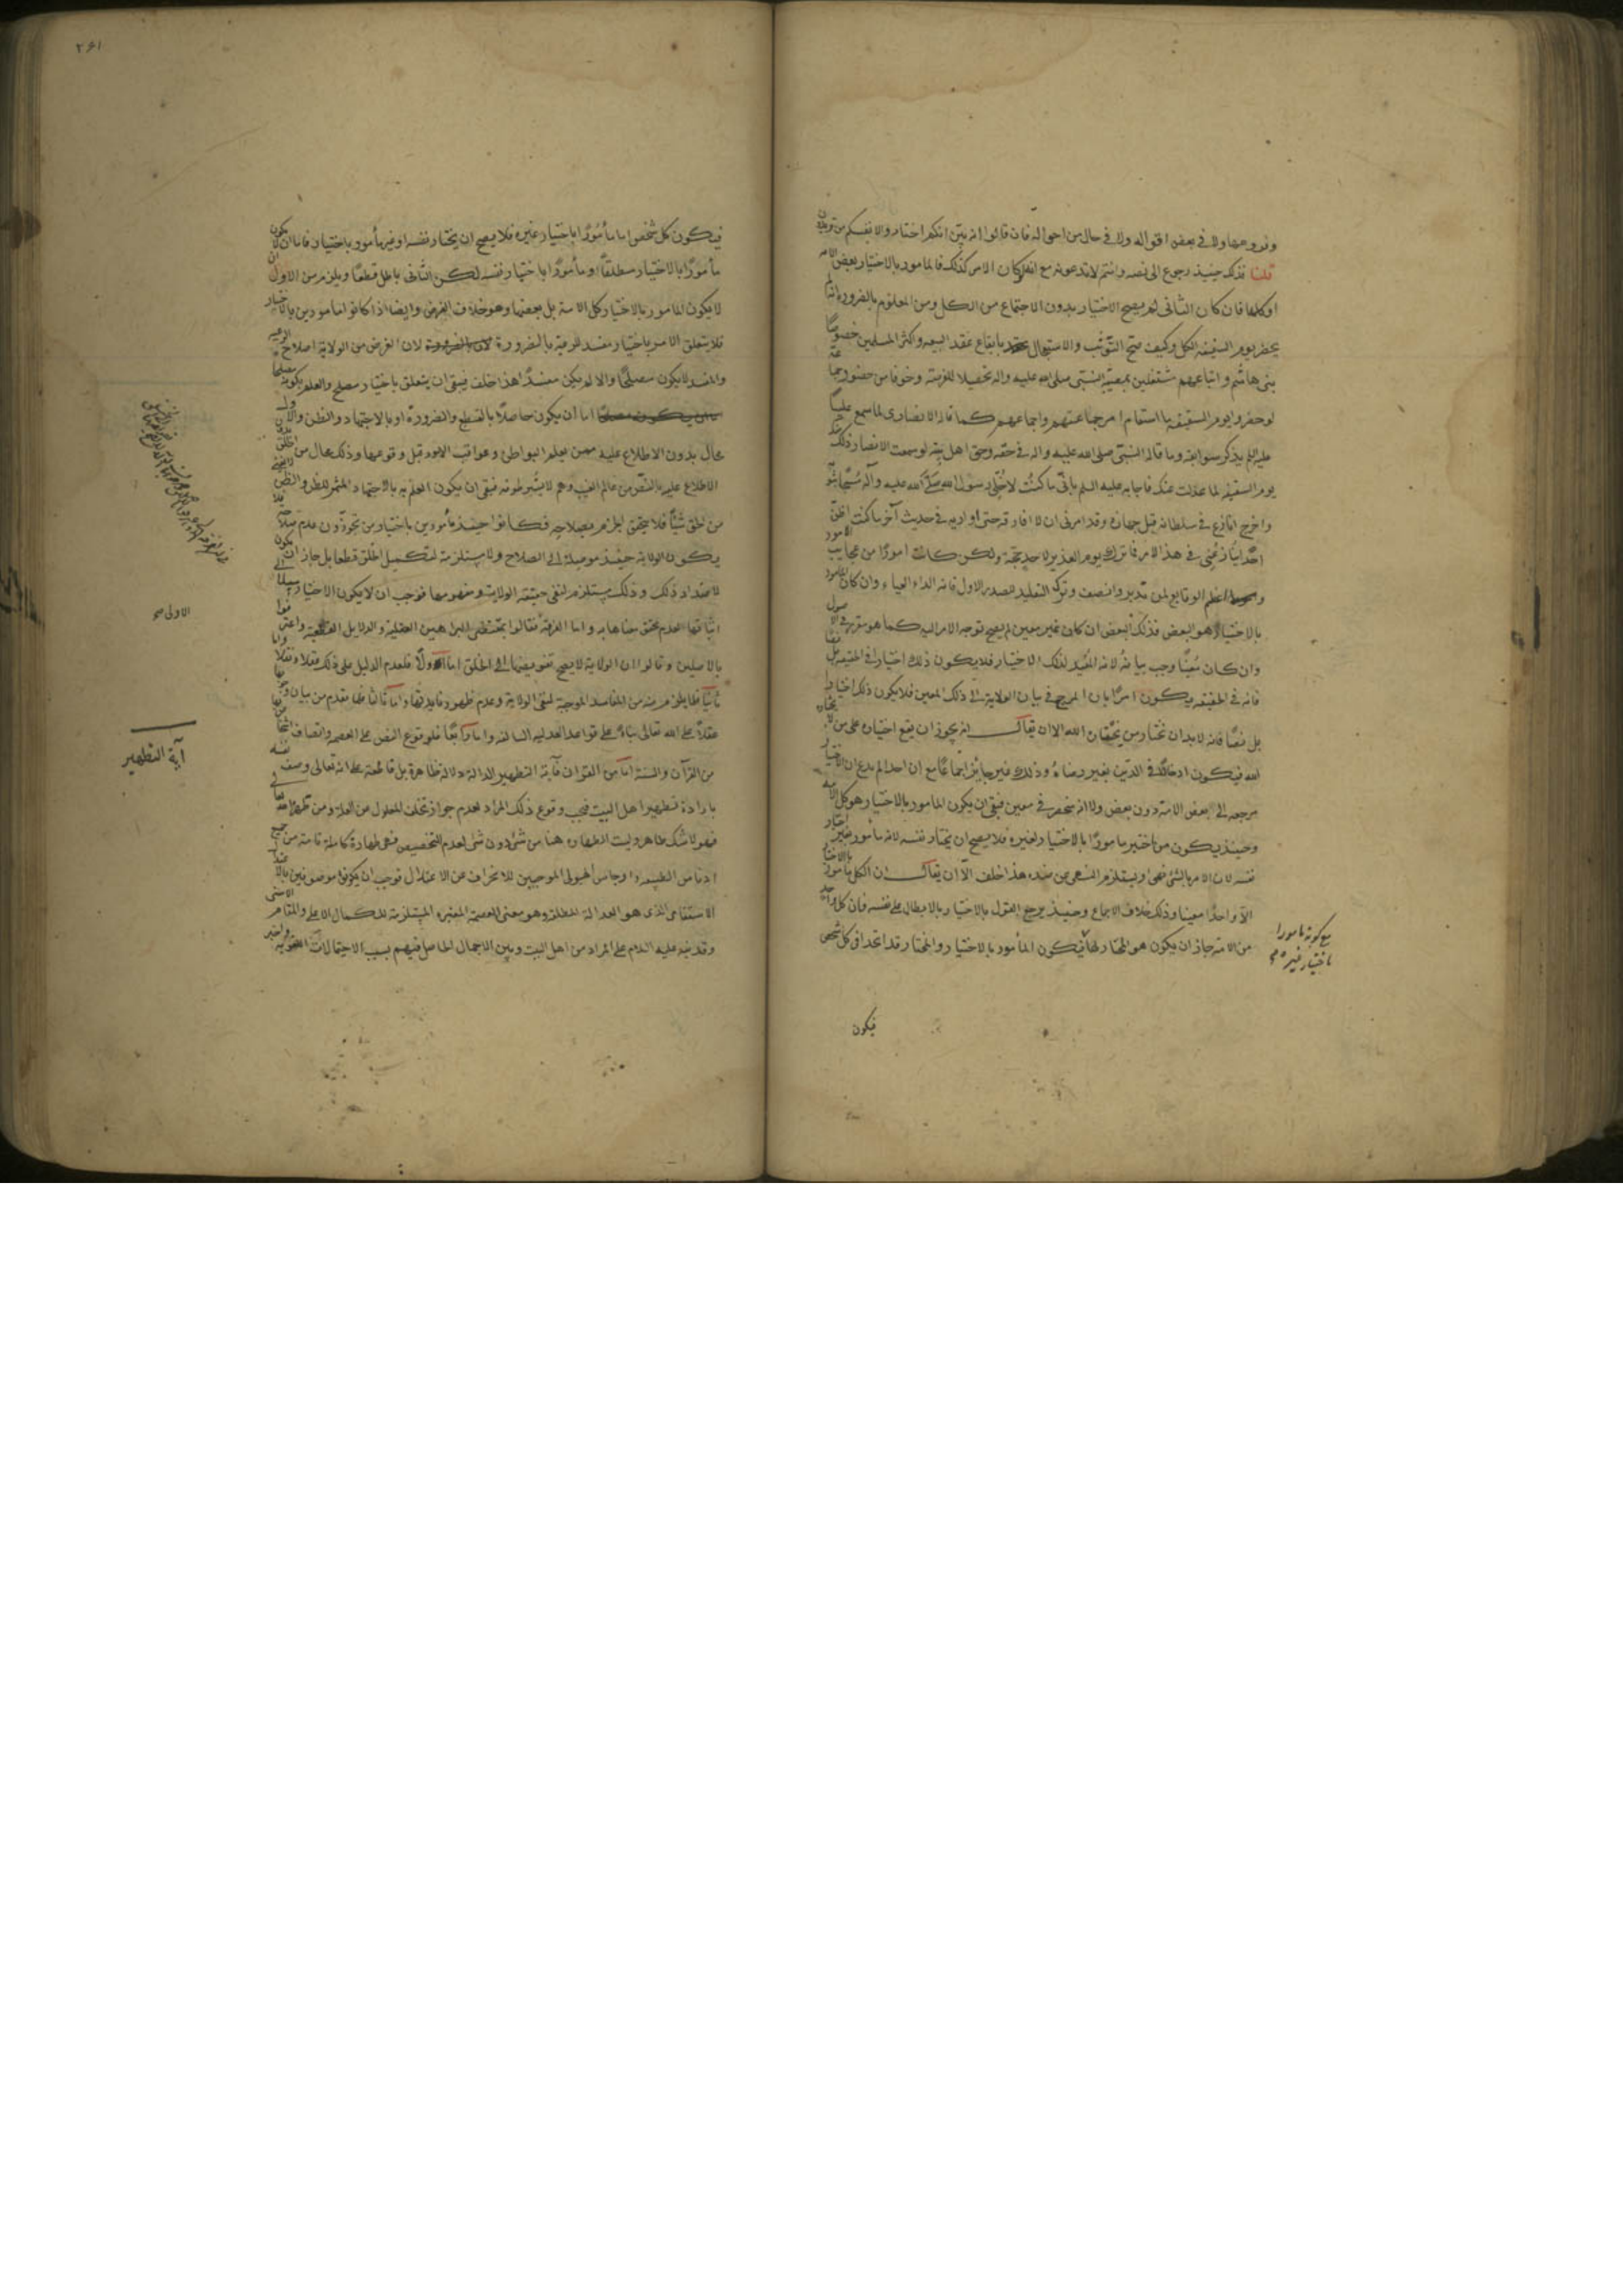 وندوعها ولا فى بعض اقواله ولا فى حال من احواله فان قالوا انه بين انكم اختاروا لانفسكم من تريدون
قلنا فذلك حينئذ رجوع الى نصه وانتم لا تدعونه مع انه لو كان الامر كذلك فالمامور بالاختيار بعض الامة
او كلها فان كان الثانى لم يصح الاختيار بدون الاجتماع من الكل ومن المعلوم بالضرورة انه لم
يحضر يوم السقيفة الكل وكيف صح التوثب والاستعجال بايقاع عقد البيعة واكثر المسلمين خصوصا
بنى هاشم واتباعهم مشتغلين بمصيبة النبى صلى الله عليه واله تحصيلا للفرصة وخوفا من حضور جماعة
لو حضروا يوم السقيفة ما استقام امر جماعتهم واجماعهم كما قال الانصارى لما سمع عليا
عليه السلم يذكر سوابقه وما قاله النبى صلى الله عليه واله فى حقه وحق اهل بيته لو سمعت الانصار ذلك منك
يوم السقيفة لما عدلت عنك فاجابه عليه السلم بانى ما كنت لاخلى رسول الله صلى الله عليه وآله مسجا بثوبه
واخرج انازع فى سلطانه قبل جهازه وقد امرنى ان لا افارقه حتى اواريه فى حديث آخر ما كنت اظن
احدا ينازعنى فى هذا الامر فما ترك يوم الغدير لاحد حجة ولكن كانت امورا من عجايب الامور
واعظم الوقايع لمن تدبر وانصف وترك التقليد للصدر الاول فانه الداء العياء وان كان المامور
بالاختيار هو البعض فذلك البعض ان كان غير معين لم يصح توجه الامر اليه كما هو مقرر فى الاصول
وان كان معينا وجب بيانه لانه المفيد لذلك الاختيار فلا يكون ذلك اختيارا فى الحقيقة بل نصا
فانه فى الحقيقة يكون امرا بان المرجع فى بيان الولاية الى ذلك المعين فلا يكون ذلك اختيارا
بل نصا فانه لا بد ان نختار من يختاره الله الا ان يقال انه يجوز ان يقع اختياره على من لا يختاره
الله فيكون ادخالا فى الدين بغير رضاه وذلك غير جايز اجماعا مع ان احدا لم يدع ان الاختيار
مرجعه الى بعض الامة دون بعض ولا انه منحصر فى معين فبقى ان يكون المامور بالاختيار هو كل الامة
وحينئذ يكون من اختير مامورا بالاختيار لغيره فلا يصح ان يختار نفسه لانه مأمور باختيار غير
نفسه لان الامر بالشئ نهى او يستلزم النهى عن ضده هذا خلف الا ان يقال ان الكل مأمور بالاختيار
الا واحدا معينا وذلك خلاف الاجماع وحينئذ يرجع القول بالاختيار بالابطال على نفسه فان كل واحد
من الامة جاز ان يكون هو المختار لها فيكون المأمور بالاختيار والمختار قد اتحدا فى كل شخص
مع كونه مامورا
باختيار غيره صح
فيكون
٢٦١
فيكون كل شخص اما مأمورا باختيار غيره فلا يصح ان يختار نفسه او غير مأمور باختيار فاما ان لا يكون
مأمورا بالاختيار مطلقا او مأمورا باختيار نفسه لكن الثانى باطل قطعا ويلزم من الاول ان
لا يكون المامور بالاختيار كل الامة بل بعضها وهو خلاف الفرض وايضا اذا كانوا مامورين بالاختيار
فلا يتعلق الامر باختيار مفسد للرعية بالضرورة لان الغرض من الولاية اصلاح الرعية
والمفسد لا يكون مصلحا والا لم يكن مفسدا هذا خلف فبقى ان يتعلق باختيار مصلح والعلم بكونه مصلحا
اما ان يكون حاصلا بالقطع والضرورة او بالاجتهاد والظن والاول
محال بدون الاطلاع عليه ممن يعلم البواطن وعواقب الامور قبل وقوعها وذلك محال من الخلق بدون
الاطلاع عليه بالنص من عالم الغيب وهم لا يعتبرطونه فبقى ان يكون العلم به بالاجتهاد المثمر للظن والظن لا يغنى
من الحق شيئا فلا يتحقق الجزم بصلاحه فكانوا حينئذ مأمورين باختيار من يجوزون عدم صلاحه فلا
يكون الولاية حينئذ موصلة الى الصلاح ولا مستلزمة لتكميل الخلق قطعا بل جاز ان يكون
لاضداد ذلك وذلك مستلزم لنفى حقيقة الولاية ومفهومها فوجب ان لا يكون الاختيار سبيلا الى
اثباتها لعدم تحقق معناها به واما الفرقة فقالوا بمقتضى البراهين العقلية والدلايل القطعية واعترفوا
بالاصلين وقالوا ان الولاية لا يصح تفويضها الى الخلق اما اولا فلعدم الدليل على ذلك عقلا ونقلا واما
ثانيا فلما يلزم منه من المفاسد الموجبة لنفى الولاية وعدم ظهور فايدتها واما ثالثا فلما تقدم من بيان وجوبها
عقلا على الله تعالى بناء على قواعد العدلية السالفة واما رابعا فلوقوع النص على العصمة واتصاف
من القرآن والسنة اما من القرآن فآية التطهير الدالة دلالة ظاهرة بل قاطعة على انه تعالى وصف نفسه
بارادة تطهير اهل البيت فيجب وقوع ذلك المراد لعدم جواز تخلف المعلول عن العلة ومن طهره الله تعالى
فهو لا شك طاهر وليست الطهارة هنا من شئ دون شئ لعدم التخصيص فهى طهارة كاملة تامة من جميع
ادناس الطبيعة وارجاس الهيولى الموجبين للانحراف عن الاعتدال فوجب ان يكونوا موصوفين بالاعتدال
الاستقامى الذى هو العدالة المطلقة وهو معنى العصمة المعتبرة المستلزمة للكمال الاعلى والمقام الاسنى
وقد نبه عليه السلام على المراد من اهل البيت وبين الاجمال الحاصل فيهم بسبب الاحتمالات اللغوية واخبر
الاولى صح
آية التطهير